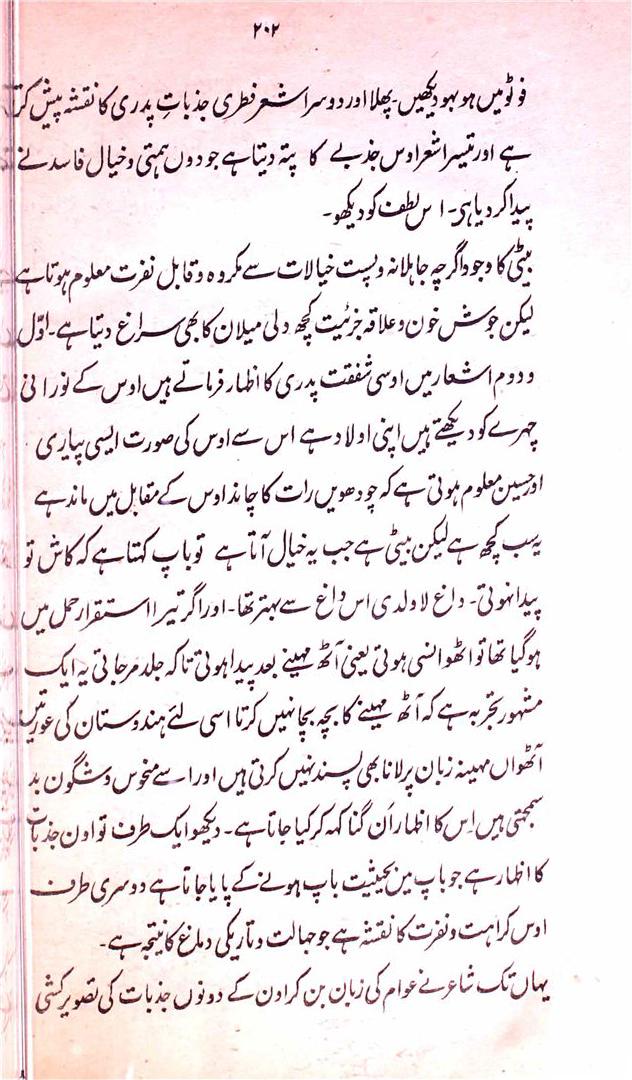 ۲۰۲
فوٹو میں ہو بہو دیکھیں۔ پھلا اور دوسرا شعر فطری جذباتِ پدری کا نقشہ پیش کرتا
ہے اور تیسرا شعر اوس جذبے کا پتہ دیتا ہے جو دوں ہمتی و خیال فاسد نے
پیدا کر دیا ہی۔ اس لطف کو دیکھو۔
بیٹی کا وجود اگرچہ جاہلانہ و پست خیالات سے مکروہ و قابل نفرت معلوم ہوتا ہے
لیکن جوش خون و علاقہ جزئیت کچھ دلی میلان کا بھی سراغ دیتا ہے۔ اوّل
و دوم اشعار میں اوسی شفقت پدری کا اظہار فرماتے ہیں اوس کے نورانی
چہرے کو دیکھتے ہیں اپنی اولاد ہے اس سے اوس کی صورت ایسی پیاری
اور حسین معلوم ہوتی ہے کہ چودھویں رات کا چاند اوس کے مقابل میں ماند ہے
یہ سب کچھ ہے لیکن بیٹی ہے جب یہ خیال آتا ہے تو باپ کہتا ہے کہ کاش تو
پیدا نہوتی۔ داغ لا ولدی اس داغ سے بہتر تھا۔ اور اگر تیرا استقرار حمل میں
ہو گیا تھا تو اٹھوانسی ہوتی یعنی آٹھ مہینے بعد پیدا ہوتی تاکہ جلد مر جاتی یہ ایک
مشہور تجربہ ہے کہ آٹھ مہینے کا بچہ بچا نہیں کرتا اسی لئے ہندوستان کی عورتیں
آٹھواں مہینہ زبان پر لانا بھی پسند نہیں کرتی ہیں اور اسے منحوس و شگون بد
سمجھتی ہیں اِس کا اظہار اَن گنا کہہ کر کیا جاتا ہے۔ دیکھو ایک طرف تو اون جذبات
کا اظہار ہے جو باپ میں بحیثیت باپ ہونے کے پایا جاتا ہے دوسری طرف
اوس کراہت و نفرت کا نقشہ ہے جو جہالت و تاریکی دماغ کا نتیجہ ہے۔
یہاں تک شاعر نے عوام کی زبان بن کر اون کے دونوں جذبات کی تصویر کشی